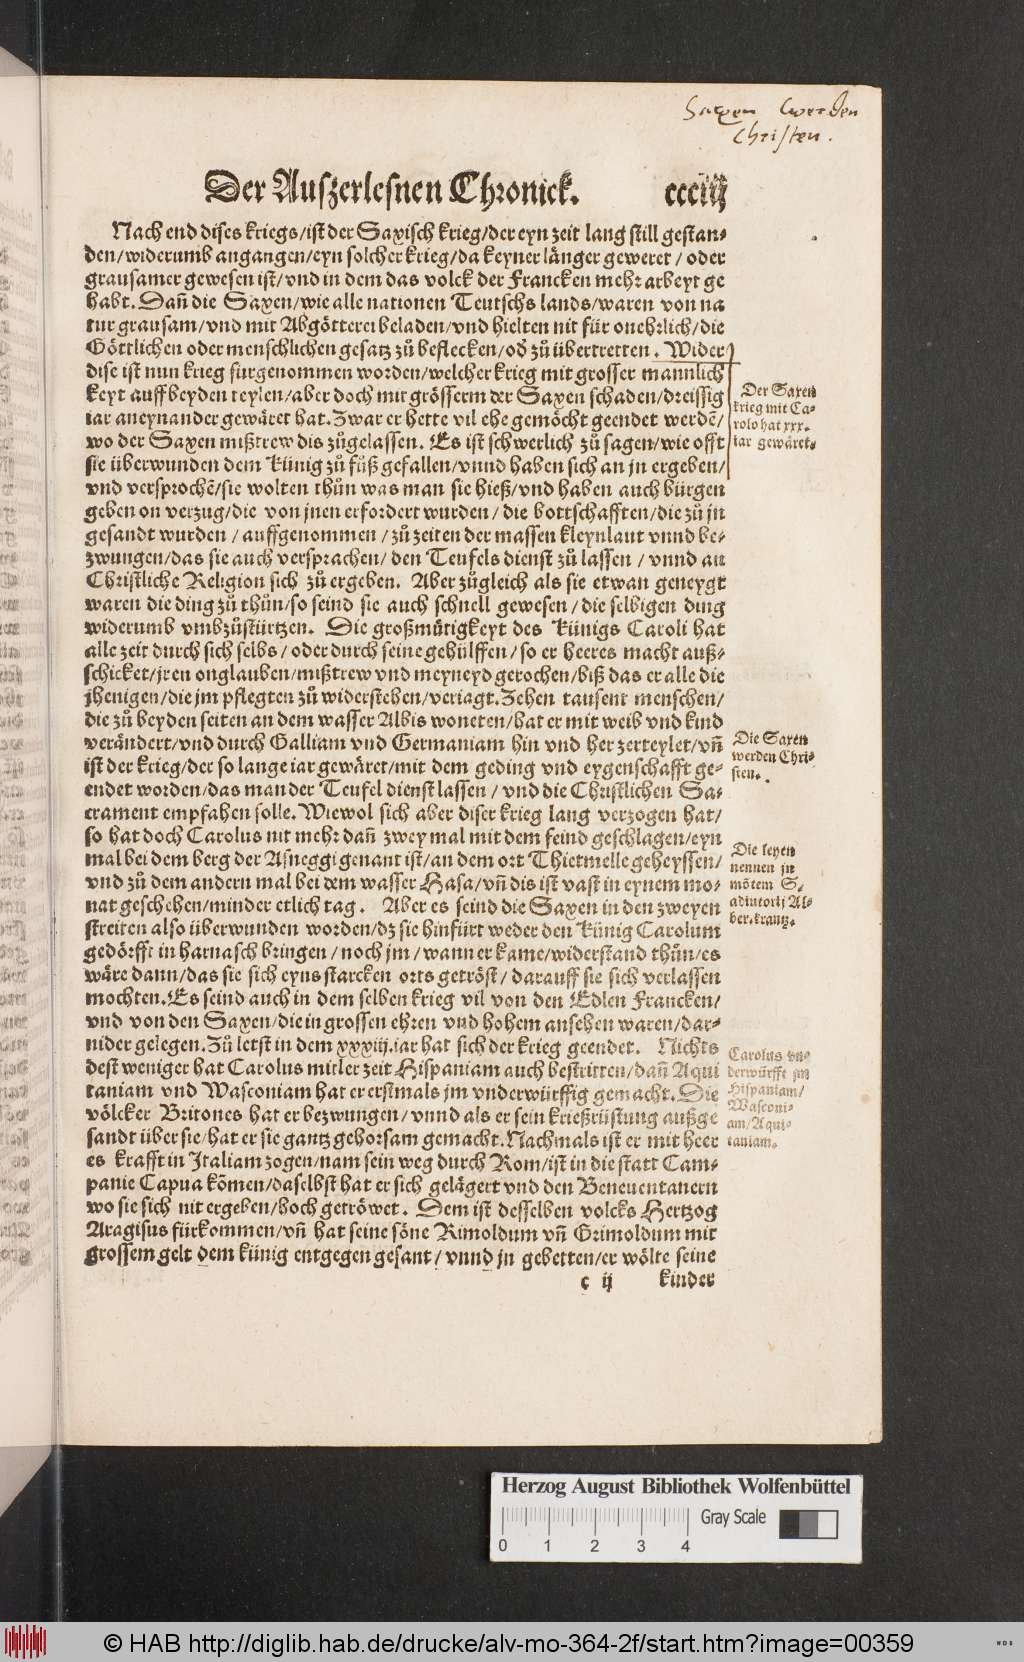 Saxen werden
Christen.
Der Auszerlesnen Chronick. ccciij
Nach end dises kriegs/ist der Saxisch krieg/der eyn zeit lang still gestan⸗
den/widerumb angangen/eyn solcher krieg/da keyner länger geweret/oder
grausamer gewesen ist/vnd in dem das volck der Francken mehr arbeyt ge
habt. Dañ die Saxen/wie alle nationen Teutschs lands/waren von na
tur grausam/vnd mit Abgötterei beladen/vnd hielten nit für onehrlich/die
Göttlichen oder menschlichen gesatz zů beflecken/oď zů übertretten. Wider
dise ist nun krieg fürgenommen worden/welcher krieg mit grosser mannlich
keyt auff beyden teylen/aber doch mit grösserm der Saxen schaden/dreissig
iar aneynander gewäret hat. Zwar er hette vil ehe gemöcht geendet werdẽ/
wo der Saxen mißtrew dis zůgelassen. Es ist schwerlich zů sagen/wie offt
sie überwunden dem Künig zů fůß gefallen/vnnd haben sich an jn ergeben/
vnd versprochẽ/sie wolten thůn was man sie hieß/vnd haben auch bürgen
geben on verzug/die von jnen erfordert wurden/die bottschafften/die zů jn
gesandt wurden/auffgenommen/zů zeiten der massen kleynlaut vnnd be⸗
zwungen/das sie auch versprachen/den Teufels dienst zů lassen/vnnd an
Christliche Religion sich zů ergeben. Aber zůgleich als sie etwan geneygt
waren die ding zů thůn/so seind sie auch schnell gewesen/die selbigen ding
widerumb vmbzůstürtzen. Die großmütigkeyt des Künigs Caroli hat
alle zeit durch sich selbs/oder durch seine gehülffen/so er heeres macht auß⸗
schicket/jren onglauben/mißtrew vnd meyneyd gerochen/biß das er alle die
jhenigen/die jm pflegten zů widerstehen/veriagt. Zehen tausent menschen/
die zů beyden seiten an dem wasser Albis woneten/hat er mit weib vnd kind
verändert/vnd durch Galliam vnd Germaniam hin vnd her zerteylet/vñ
ist der krieg/der so lange iar gewäret/mit dem geding vnd eygenschafft ge⸗
endet worden/das man der Teufel dienst lassen/vnd die Christlichen Sa⸗
crament empfahen solle. Wiewol sich aber diser krieg lang verzogen hat/
so hat doch Carolus nit mehr dañ zwey mal mit dem feind geschlagen/eyn
mal bei dem berg der Asneggi genant ist/an dem ort Thietmelle geheyssen/
vnd zů dem andern mal bei dem wasser Hasa/vñ dis ist vast in eynem mo⸗
nat geschehen/minder etlich tag. Aber es seind die Saxen in den zweyen
streiten also überwunden worden/dz sie hinfürt weder den Künig Carolum
gedörfft in harnasch bringen/noch jm/wann er kame/widerstand thůn/es
wäre dann/das sie sich eyns starcken orts getröst/darauff sie sich verlassen
mochten. Es seind auch in dem selben krieg vil von den Edlen Francken/
vnd von den Saxen/die in grossen ehren vnd hohem ansehen waren/dar⸗
nider gelegen. Zů letst in dem xxxiij. iar hat sich der krieg geendet. Nichts
dest weniger hat Carolus mitler zeit Hispaniam auch bestritten/dañ Aqui
taniam vnd Wasconiam hat er erstmals jm vnderwürffig gemacht. Die
völcker Britones hat er bezwungen/vnnd als er sein krießrüstung außge
sandt über sie/hat er sie gantz gehorsam gemacht. Nachmals ist er mit heer
es krafft in Italiam zogen/nam sein weg durch Rom/ist in die statt Cam⸗
panie Capua kõmen/daselbst hat er sich gelägert vnd den Beneuentanern
wo sie sich nit ergeben/hoch getröwet. Dem ist desselben volcks Hertzog
Aragisus fürkommen/vñ hat seine söne Rimoldum vñ Grimoldum mit
grossem gelt dem künig entgegen gesant/vnnd jn gebetten/er wölte seine
c ij kinder
Der Saxen
krieg mit Ca⸗
rolo hat xxx.
iar gewäret.
Die Saxen
werden Chri⸗
sten.
Die leyen
nennen jn
mõtem S.
adiutorij Al⸗
ber. krantz.
Carolus vn⸗
derwürfft jm
Hispaniam/
Wasconi⸗
am/Aqui⸗
taniam.
Herzog August Bibliothek Wolfenbüttel
Gray Scale
0 1 2 3 4
© HAB http://diglib.hab.de/drucke/alv-mo-364-2f/start.htm?image=00359